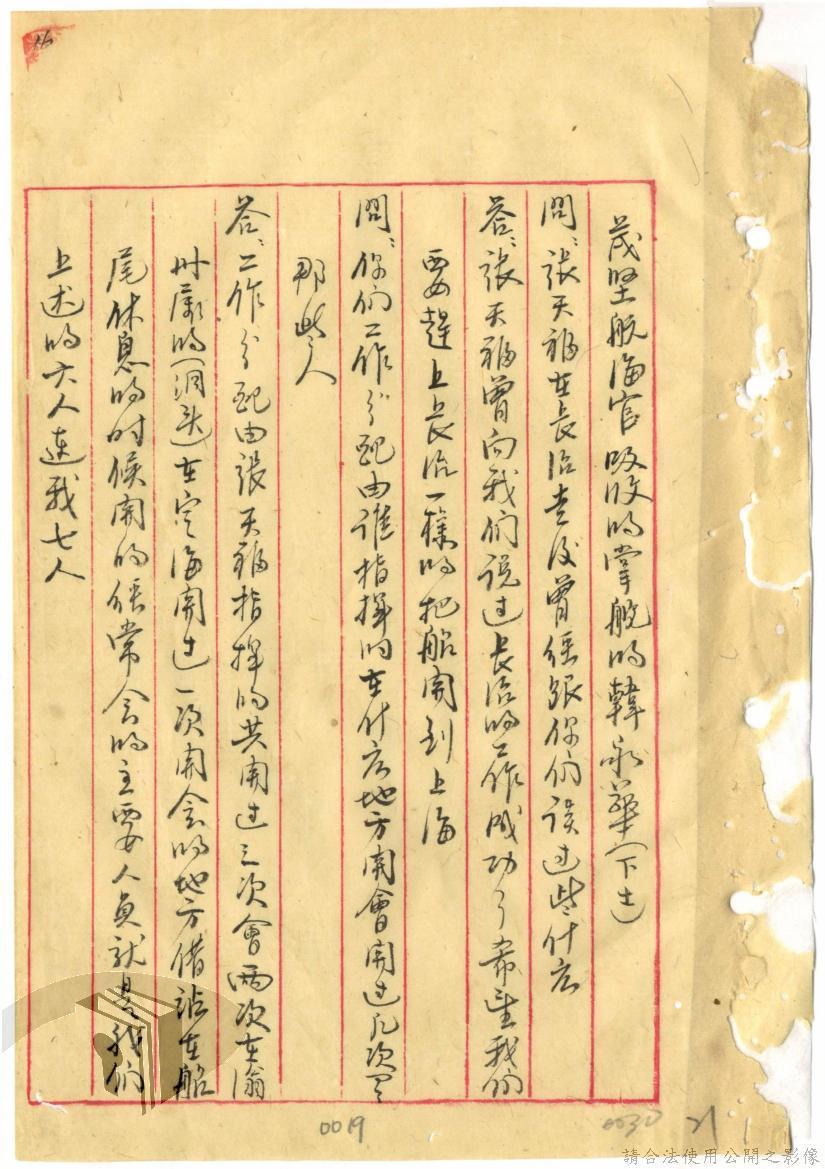 茂堅航海官吸收的掌舵的韓永華(下士)
問:張天福在長治走後曾經跟你们談过些什広
答:張天福曾向我们说过長治的工作成功了希望我们
要趕上長治一樣的把船開到上海
問:你们工作分配由谁指揮的在什広地方開會開过几次是
那些人
答:工作分配由張天福指揮的共開过三次會兩次在
州嶴的洞头在定海開过一次開会的地方借站在船
尾休息的时候開的經常会的主要人員就是我们
上述的六人連我七人
16
0019
0030
21
請合法使用公開之影像